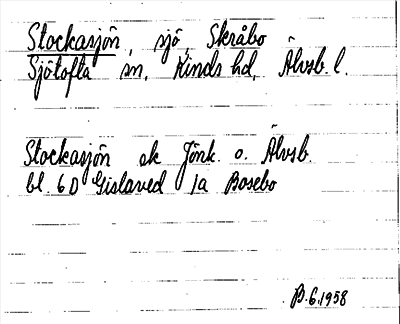 Stockasjön, sjö, Skråbo
Sjötofta sn, Kinds hd, Älvsb. l.
Stockasjön ek Jönk. o. Älvsb.
bl. 6D Gislaved 1a Bosebo
B.6.1958